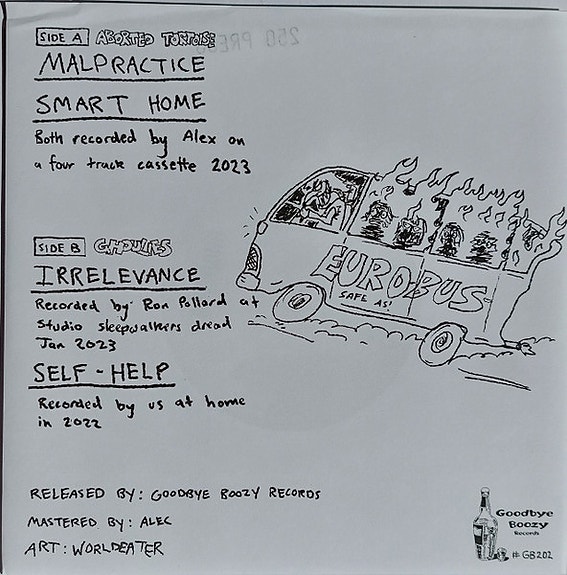 SIDE A ABORTED TORTOISE
MALPRACTICE
SMART HOME
Both recorded by Alex on
a four track cassette 2023
SIDE B GHOULIES
IRRELEVANCE
Recorded by Ron Pollard at
Studio sleepwalkers dread
Jan 2023
SELF-HELP
Recorded by us at home
in 2022
EUROBUS
SAFE AS!
RELEASED BY: GOODBYE BOOZY RECORDS
MASTERED BY: ALEC
ART: WORLDEATER
Goodbye
Boozy
Records
# GB202